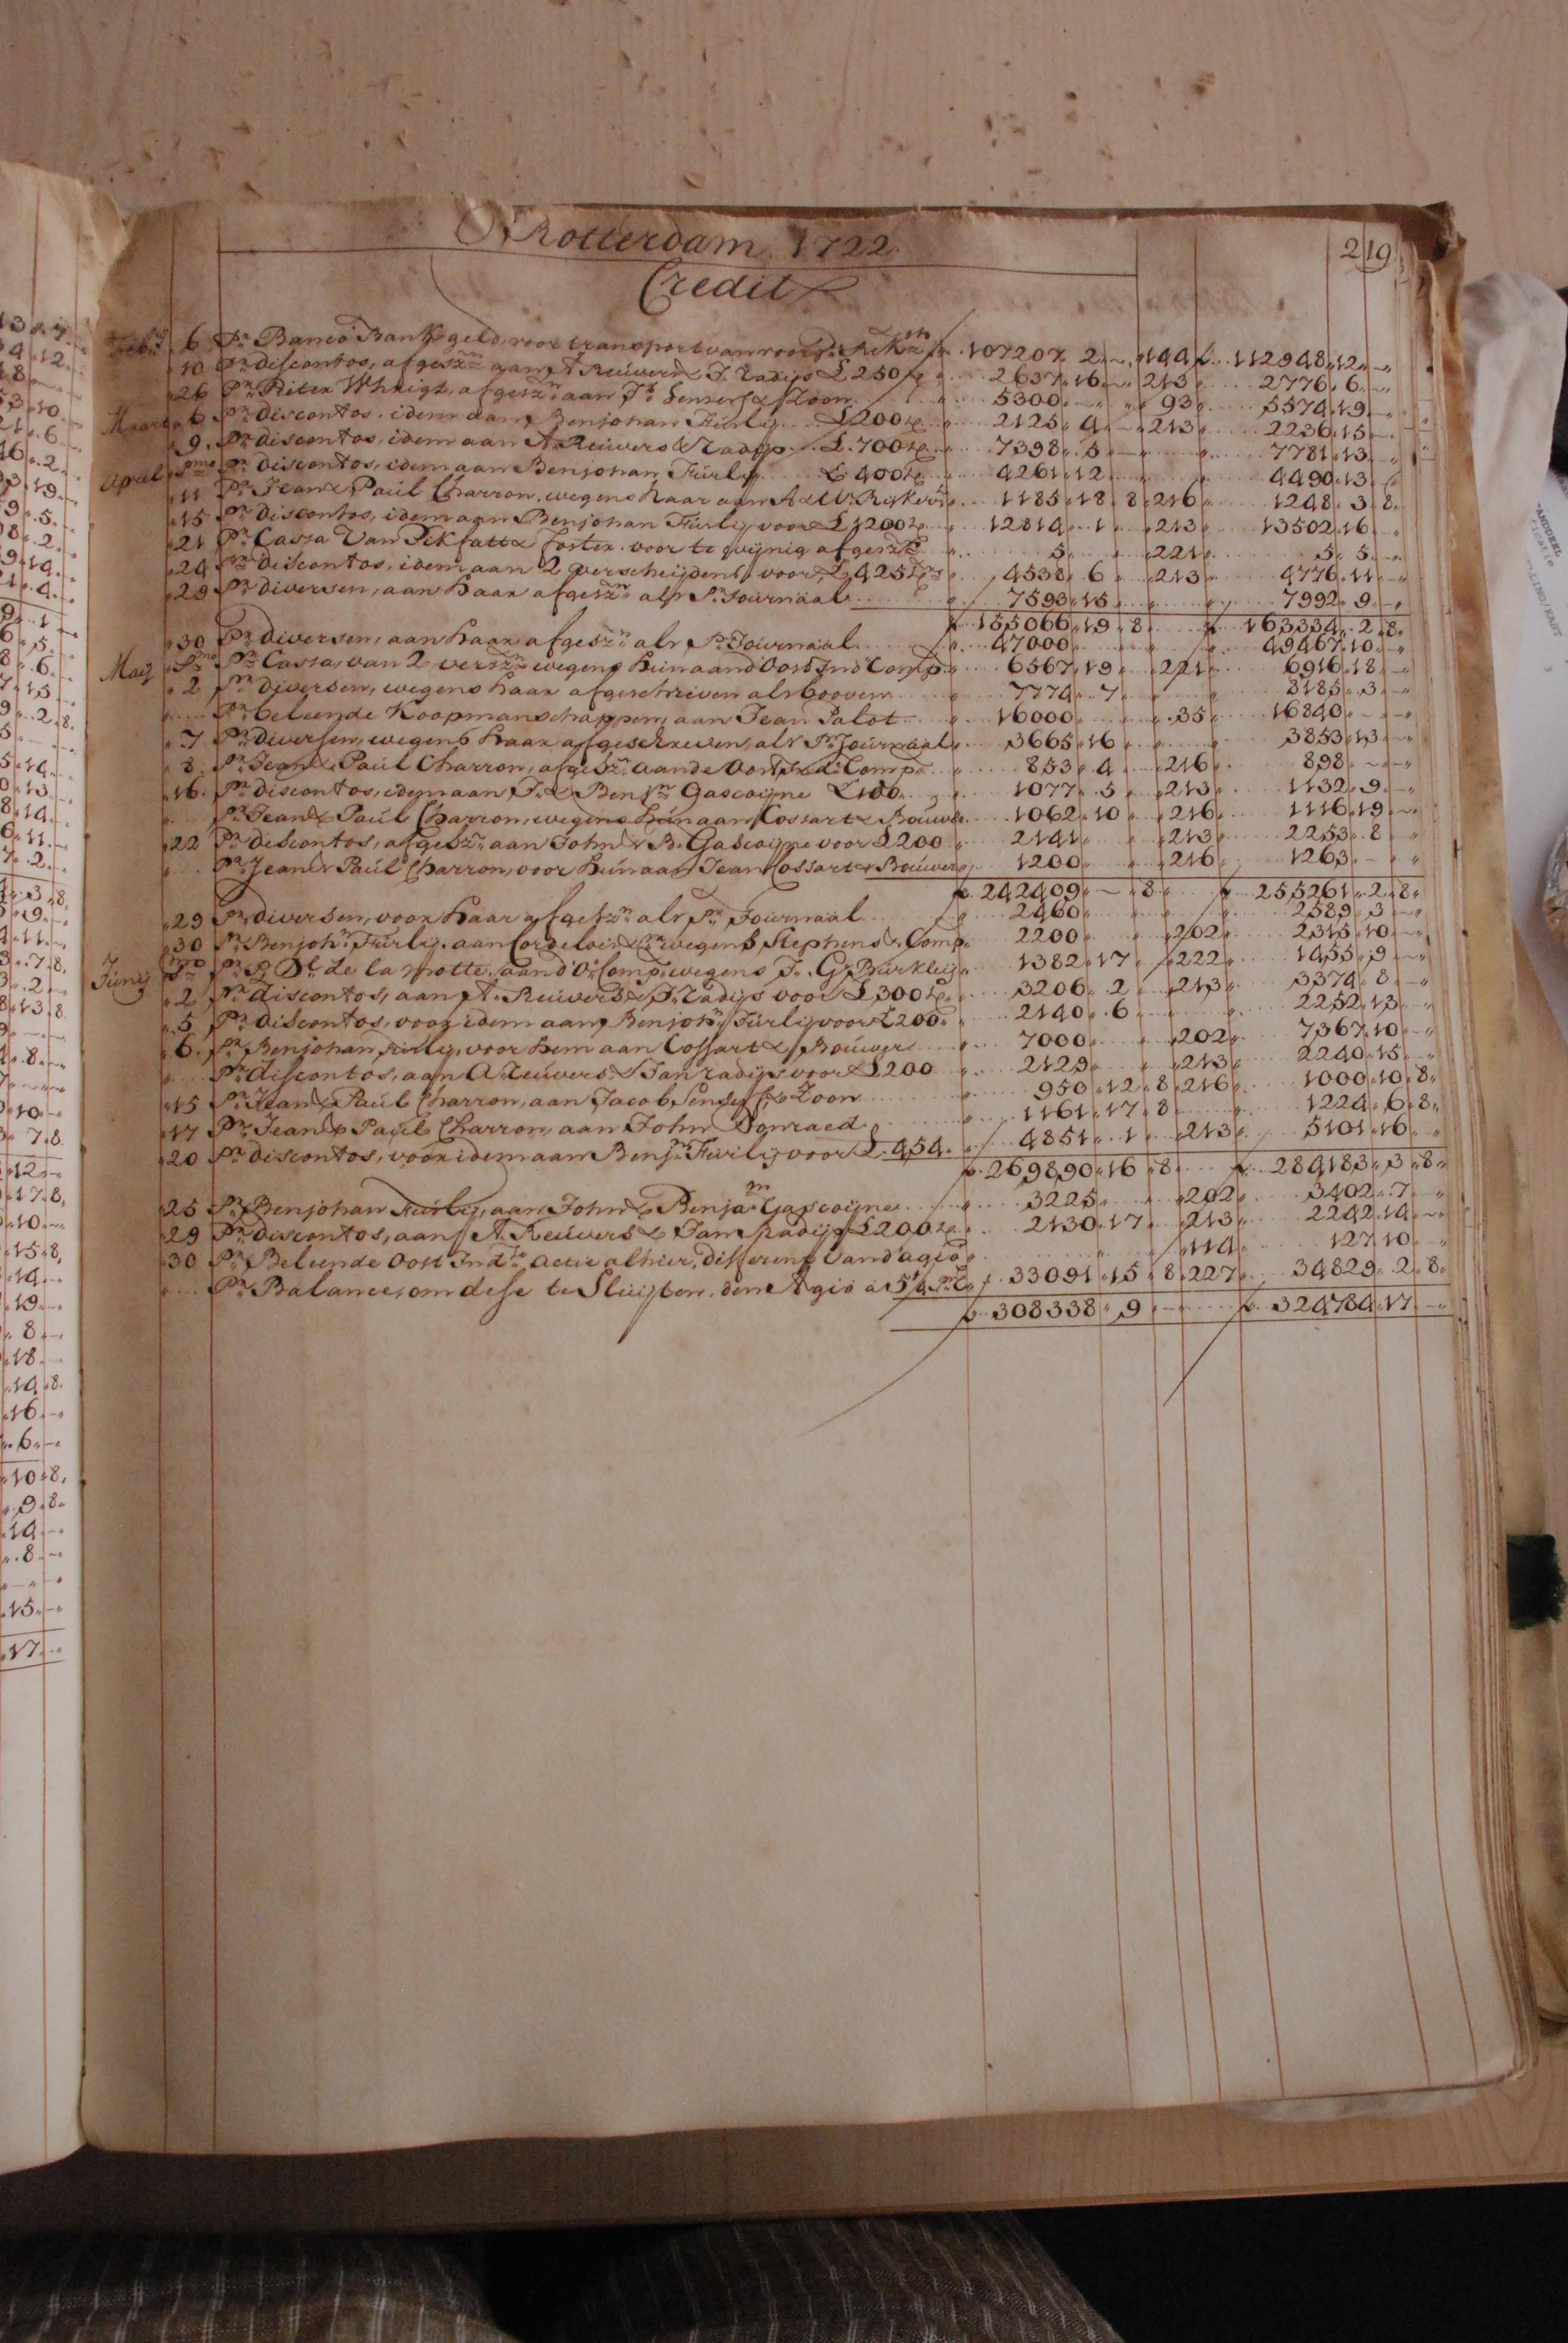 A Rotterdam. 1722. 219
Credit
Feb. 6 Pr Banco Bankgeld, voor transport van voorge Rek f 107207 2 – 144 f 112948 12 –
10 Pr discontos, afgeszn aan A Reuvers & J. Radijs £ 250 2637 16 – 213 2776 6 –
26 Pr Pieter Whright, afgeszn aan Jb Senserf & Zoon 5300 – 93 5574 19 –
Maart 6 Pr discontos, idem aan Benjohan Fúrlij £ 200 2125 4 – 213 2236 15 –
9 Pr discontos, idem aan A Reuvers & Radijs £ 700 7398 5 – 7781 13 –
April Pmo Pr discontos, idem aan Benjohan Fúrlij £ 400 4261 12 4490 13 –
11 Pr Jean & Paúl Charron, wegens haar aan A & W. Rijkers 1185 18 8 216 1248 3 8
15 Pr discontos, idem aan Benjohan Fúrlij voor £ 1200 12814 1 213 13502 16 –
21 Pr Cassa Van Pikfatt & Foster voor te wijnig afgeszn 5 221 5 5 –
24 Pr discontos, idem aan 2 verscheijdens voor £ 425 4538 6 213 4776 11 –
29 Pr diversen, aan haar afgeszn als Pr Journaal 7593 15 7992 9 –
f 155066 19 8 f 163334 2 8
30 Pr diversen, aan haar afgeszn als Pr Journaal 47000 49467 10 –
Maij Pmo Pr Cassa, van 2 verszn wegens hún aand Oost Ind Comp. 6567 19 221 6916 18 –
2 Pr diversen, wegens haar afgeschreven als booven 7774 7 8185 3 –
Pr beleende Koopmanschappen, aan Jean Palot 16000 35 16840 –
7 Pr diversen, wegens haar afgeschreven, als Pr Journaal 3665 16 3853 13 –
8 Pr Jean & Paúl Charron, afgeszn aan de Oost Ind: Comp 853 4 216 898 –
16 Pr discontos, idem aan J. & Benjn Gascoijne £ 100 1077 5 213 1132 9 –
Pr Jean & Paúl Charron, wegens hún aan Cossart & Boúwer 1062 10 216 1116 19 –
22 Pr discontos, afgeszn aan John & B. Gascoijne voor £ 200 2141 213 2253 8
Pr Jean & Paúl Charron, voor hún aan Jean Cossart & Boúwer 1200 216 1263 –
f 242409 – 8 f 255261 2 8
29 Pr diversen, voor haar afgeszn als Pr Journaal 2460 2589 3 –
30 Pr Benjohn Fúrlij, aan Cordelois & wegens Stephens & Comp 2200 202 2315 10 –
Júnij Pmo Pr P. Dl. de la Motte, aand O: Comp wegens J. G. Búrkleij 1382 17 222 1455 9 –
2 Pr discontos, aan A. Reuvers & J. Radijs voor £ 300 3206 2 213 3374 8 –
5 Pr discontos, voor idem aan Benjohn Fúrlij voor £ 200 2140 6 2252 13
6 Pr Benjohan Fúrlij, voor hem aan Cossart & Boúwer 7000 202 7367 10 –
Pr discontos, aan A Reúvers & Jan Radijs voor £ 200 2129 213 2240 15 –
15 Pr Jean & Paúl Charron, aan Jacob Senserf & Zoon 950 12 8 216 1000 10 8
17 Pr Jean & Paúl Charron, aan John Conraed 1161 17 8 1224 6 8
20 Pr discontos, voor idem aan Benjn Fúrlij voor £ 454 4851 1 213 5101 16
f 269890 16 8 f 284183 3 8
25 Pr Benjohan Fúrlij, aan John & Benjamn Gascoijne 3225 202 3402 7 –
29 Pr discontos, aan A Reúvers & Jan Radijs £ 200 2130 17 213 2242 14 –
30 Pr Beleende Oost Inde Actie alhier, differens vand agio 114 127 10
Pr Balance, om dese te Sluijten, den Agio a 5¼ PrCo f 33091 15 8 227 34829 2 8
f 308338 9 – f 324784 17 –